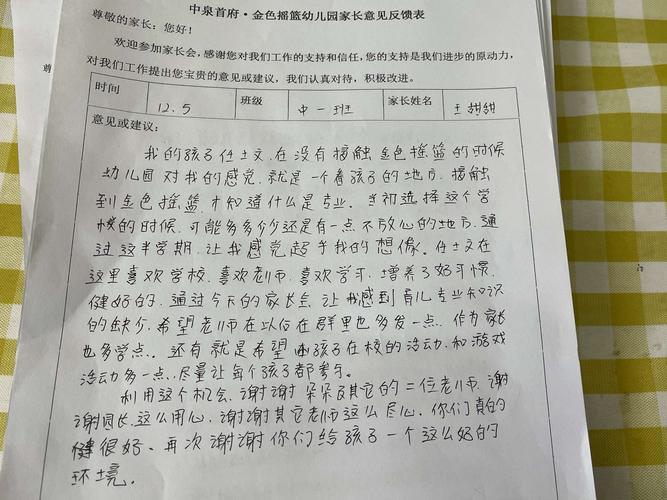 中泉首府·金色摇篮幼儿园家长意见反馈表
尊敬的家长：您好！
欢迎参加家长会，感谢您对我们工作的支持和信任，您的支持是我们进步的原动力，
对我们工作提出您宝贵的意见或建议，我们认真对待，积极改进。
时间 12.5 班级 中一班 家长姓名 王甜甜
意见或建议：
我的孩子任士文，在没有接触金色摇篮的时候
幼儿园对我的感觉，就是一个看孩子的地方，接触
到金色摇篮，才知道什么是专业。当初选择这个学
校的时候，可能多多少少还是有一点不放心的地方，通
过这半学期，让我感觉超乎我的想像。任士文在
这里喜欢学校，喜欢老师，喜欢学习，增养了好习惯，
健好的，通过今天的家长会，让我感到育儿专业知识
的缺少，希望老师在以后在群里也多发一点，作为家长
也多学点。还有就是希望孩子在校的活动，和游戏
活动多一点，尽量让每个孩子都参与。
利用这个机会，谢谢朵朵及其它的二位老师，谢
谢园长，这么用心，谢谢其它老师这么尽心，你们真的
健很好，再次谢谢你们给孩子一个这么好的
环境。